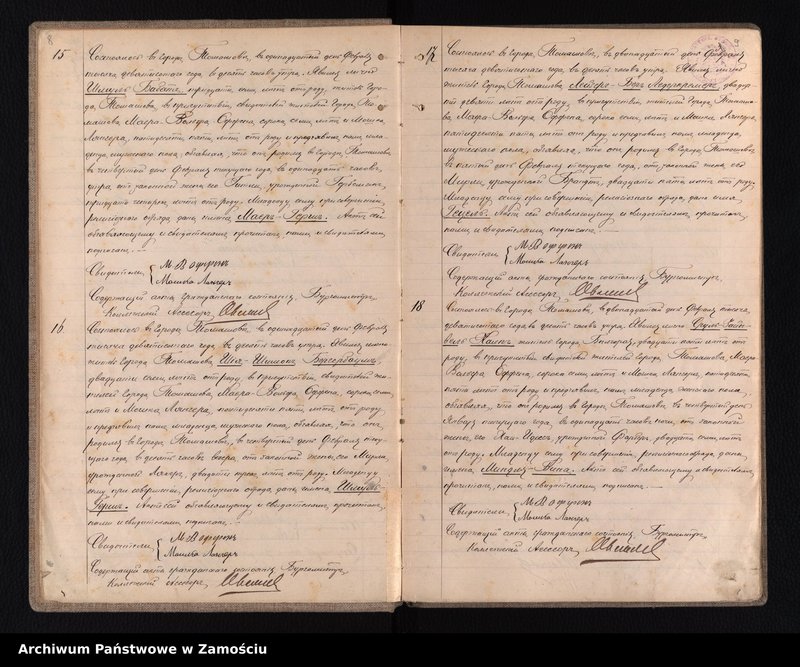 8
15
Состоялось въ городѣ Томашовѣ, въ одинадцатый день Февраля
тысяча девятисотаго года, въ десять часовъ утра. Явился лично
Шмуль тридцати семи лѣтъ отъ роду, житель горо-
да Томашова, въ присутствіи свидѣтелей жителей города То-
машова Маера-Вольфа Оффена, сорока семи лѣтъ и Мошка
Лангера, пятидесяти пяти лѣтъ отъ роду и предъявилъ намъ мла-
денца мужескаго пола, объявляя, что онъ родился въ городѣ Томашовѣ
въ четвертый день Февраля текущаго года, въ одинадцать часовъ
утра отъ законной жены его урожденной
тридцати четырехъ лѣтъ отъ роду. Младенцу сему при совершеніи
религіознаго обряда дано имя Маеръ-Гершъ. Актъ сей
объявляющему и свидѣтелямъ прочитанъ, нами и свидѣтелями
подписанъ.
Свидѣтели
М В Оффенъ
Мошко Лангеръ
Содержащій акты гражданскаго состоянія Бургомистръ,
Коллежскій Ассесоръ,
16
Состоялось въ городѣ Томашовѣ, въ одинадцатый день Февраля
тысяча девятисотаго года, въ десять часовъ утра. Явился лично
житель города Томашова,
двадцати семи лѣтъ отъ роду, въ присутствіи свидѣтелей жи-
телей города Томашова, Маера-Вольфа Оффена, сорока семи
лѣтъ и Мошка Лангера, пятидесяти пяти лѣтъ отъ роду
и предъявилъ намъ младенца мужескаго пола, объявляя, что онъ
родился въ городѣ Томашовѣ, въ четвертый день Февраля теку-
щаго года въ десять часовъ вечера, отъ законной жены его
урожденной Лангеръ, двадцати трехъ лѣтъ отъ роду. Младенцу
сему при совершеніи религіознаго обряда дано имя
Гершъ. Актъ сей объявляющему и свидѣтелямъ прочитанъ,
нами и свидѣтелями подписанъ.
Свидѣтели
М В Оффенъ
Мошко Лангеръ
Содержащій акты гражданскаго состоянія Бургомистръ,
Коллежскій Ассесоръ,
9
17
Состоялось въ городѣ Томашовѣ, въ двѣнадцатый день Февраля
тысяча девятисотаго года, въ десять часовъ утра. Явился лично
житель города Томашова двадца-
ти девяти лѣтъ отъ роду, въ присутствіи жителей города Томашо-
ва Маера-Вольфа Оффена, сорока семи лѣтъ и Мошка Лангера,
пятидесяти пяти лѣтъ отъ роду и предъявилъ намъ младенца
мужескаго пола, объявляя, что онъ родился въ городѣ Томашовѣ
въ пятый день Февраля текущаго года, отъ законной жены его
урожденной Брандтъ, двадцати пяти лѣтъ отъ роду.
Младенцу сему при совершеніи религіознаго обряда дано имя
Актъ сей объявляющему и свидѣтелямъ прочитанъ,
нами и свидѣтелями подписанъ.
Свидѣтели
М В Оффенъ
Мошко Лангеръ
Содержащій акты гражданскаго состоянія Бургомистръ,
Коллежскій Ассесоръ,
18
Состоялось въ городѣ Томашовѣ, въ двѣнадцатый день Февраля тысяча
девятисотаго года въ десять часовъ утра. Явился лично
житель города двадцати пяти лѣтъ отъ
роду, въ присутствіи свидѣтелей жителей города Томашова, Маера-
Вольфа Оффена, сорока семи лѣтъ и Мошка Лангера, пятидесяти
пяти лѣтъ отъ роду и предъявилъ намъ младенца женскаго пола,
объявляя, что онъ родился въ городѣ Томашовѣ, въ четвертый день
Января текущаго года, въ одинадцать часовъ ночи, отъ законной
жены его урожденной двадцати семи лѣтъ
отъ роду. Младенцу сему при совершеніи религіознаго обряда дано
имя Миндля- Актъ сей объявляющему и свидѣтелямъ
прочитанъ, нами и свидѣтелями подписанъ.
Свидѣтели
М В Оффенъ
Мошко Лангеръ
Содержащій акты гражданскаго состоянія Бургомистръ,
Коллежскій Ассесоръ,
Archiwum Państwowe w Zamościu